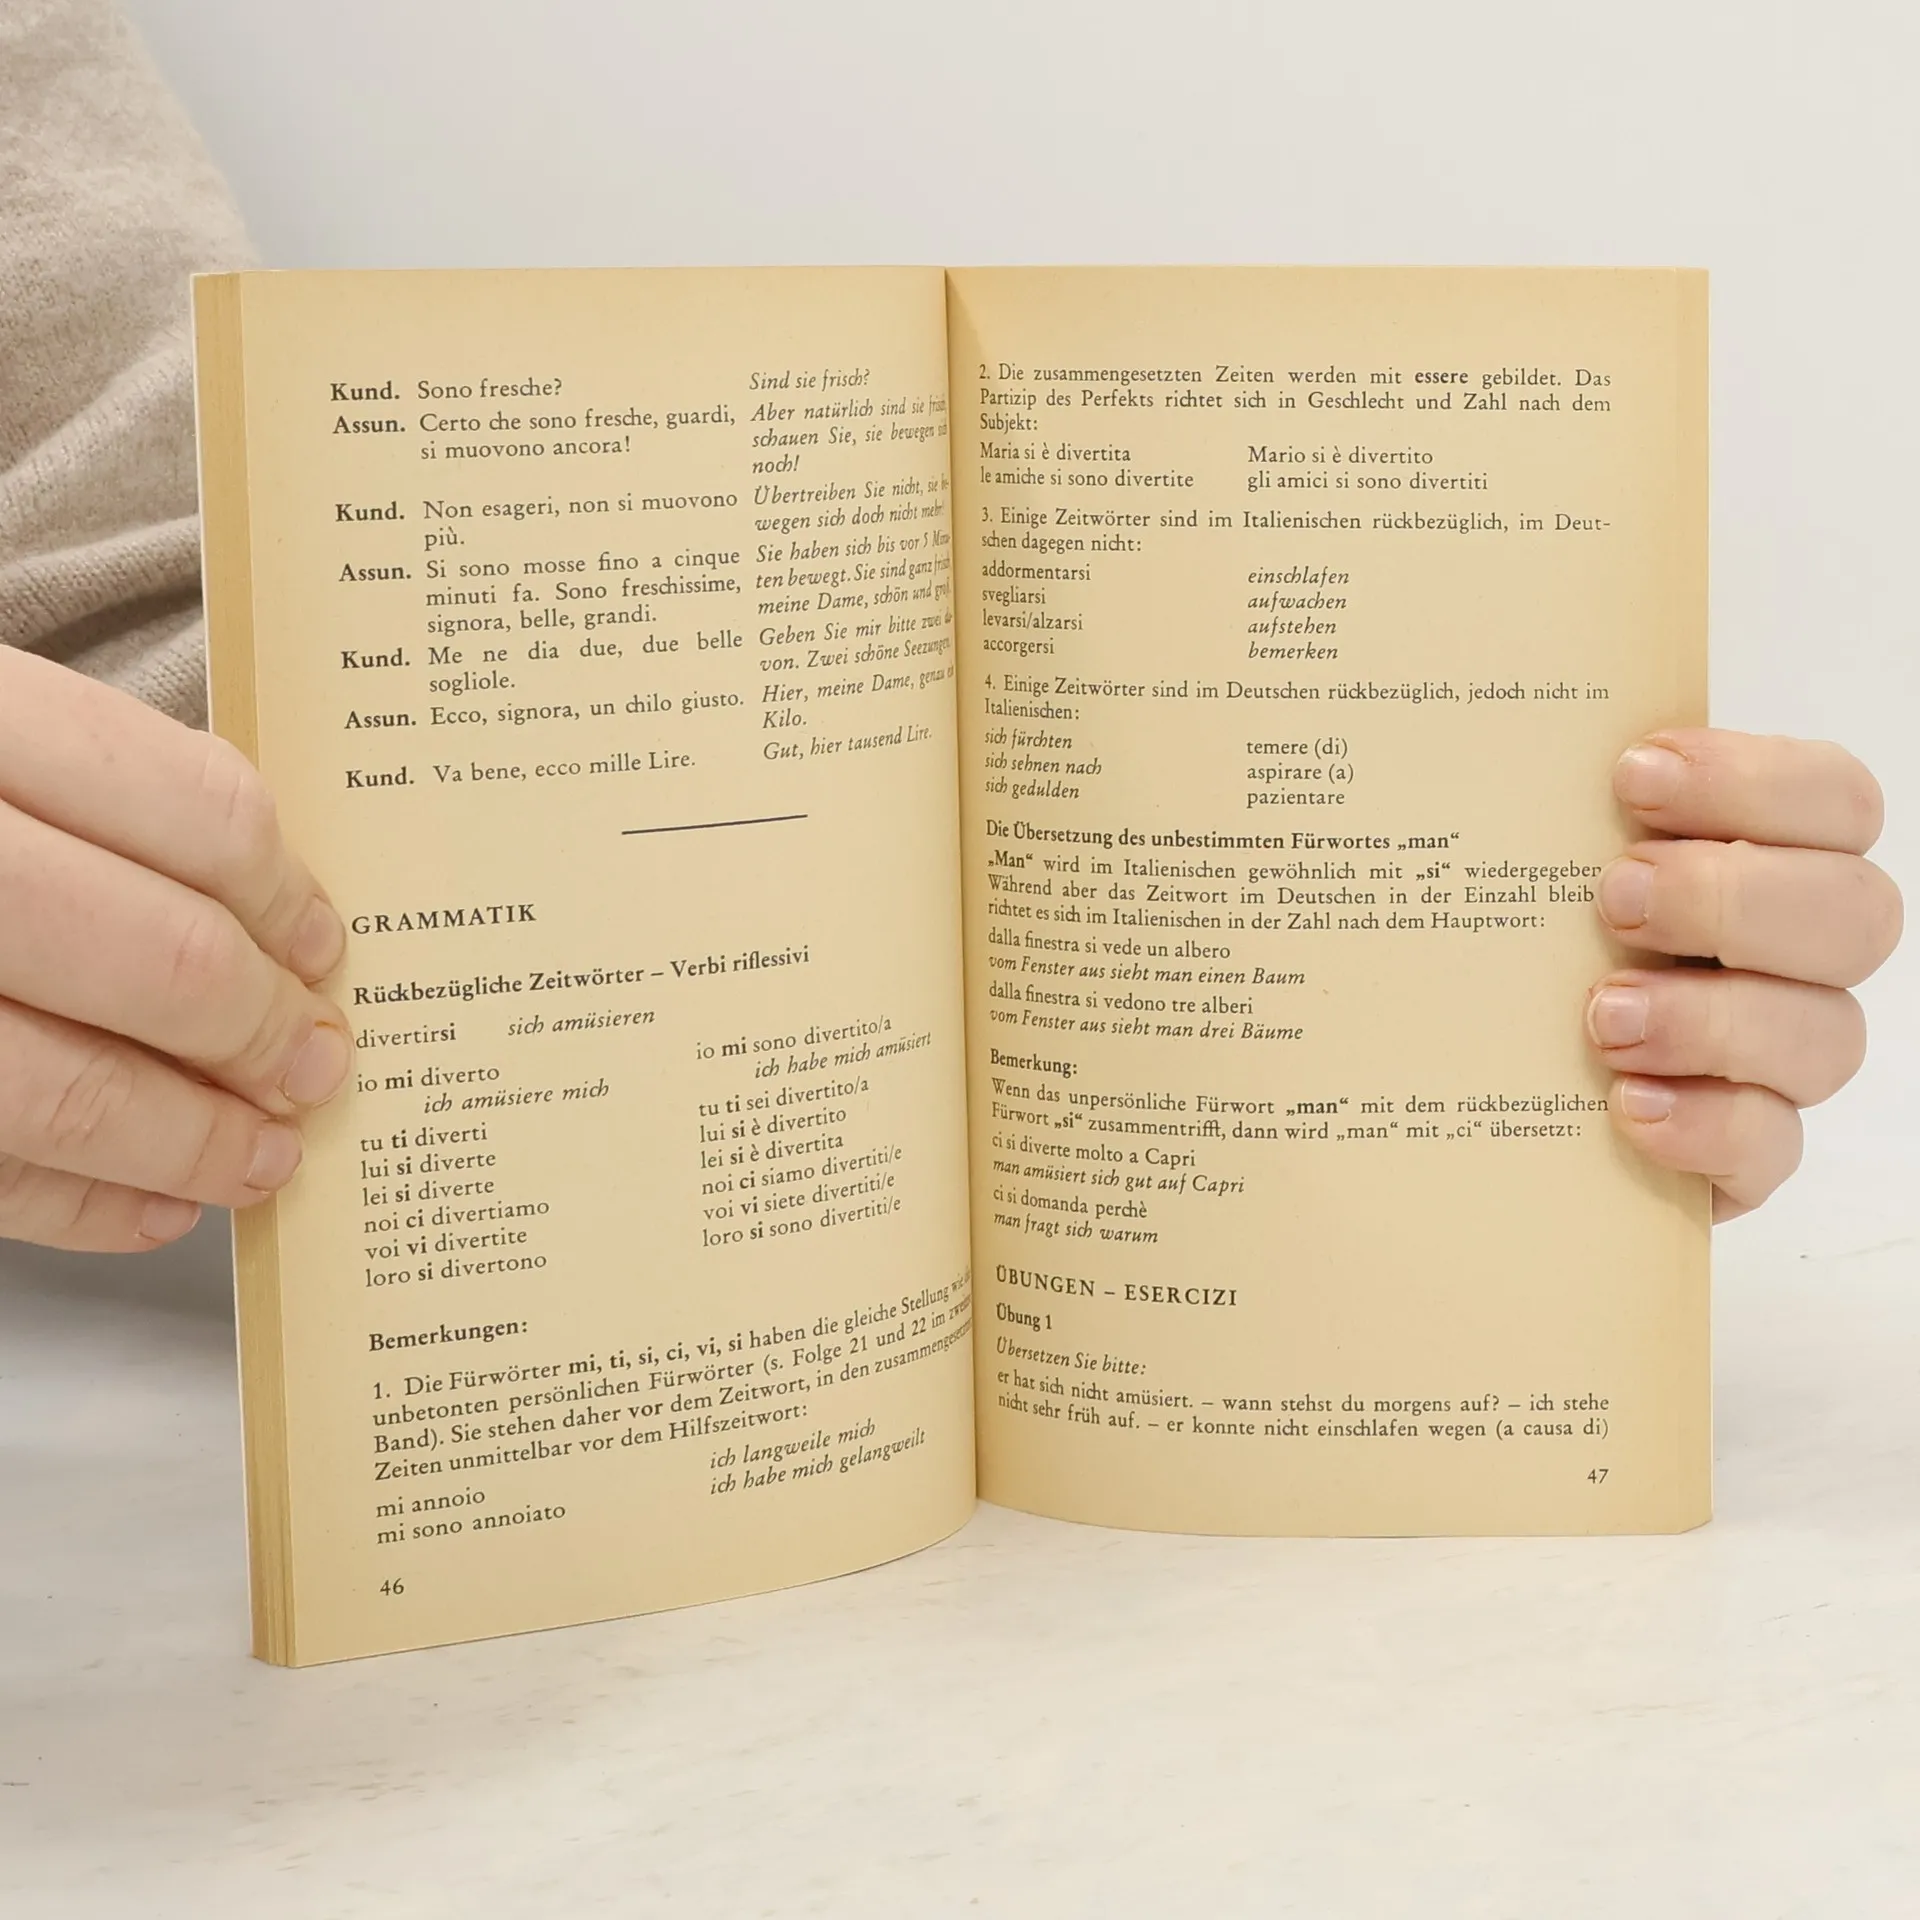 Kund. Sono fresche? Sind sie frisch?
Assun. Certo che sono fresche, guardi, Aber natürlich sind sie
si muovono ancora! schauen Sie, sie bewegen
noch!
Kund. Non esageri, non si muovono Übertreiben Sie nicht, sie
più. wegen sich doch nicht mehr!
Assun. Si sono mosse fino a cinque Sie haben sich bis vor 5
minuti fa. Sono freschissime, ten bewegt. Sie sind ganz frisch
signora, belle, grandi. meine Dame, schön und
Kund. Me ne dia due, due belle Geben Sie mir bitte zwei
sogliole. von. Zwei schöne Seezungen.
Assun. Ecco, signora, un chilo giusto. Hier, meine Dame, genau
Kilo.
Kund. Va bene, ecco mille Lire. Gut, hier tausend Lire.
GRAMMATIK
Rückbezügliche Zeitwörter – Verbi riflessivi
divertirsi sich amüsieren
io mi diverto io mi sono divertito/a
ich amüsiere mich ich habe mich amüsiert
tu ti diverti tu ti sei divertito/a
lui si diverte lui si è divertito
lei si diverte lei si è divertita
noi ci divertiamo noi ci siamo divertiti/e
voi vi divertite voi vi siete divertiti/e
loro si divertono loro si sono divertiti/e
Bemerkungen:
1. Die Fürwörter mi, ti, si, ci, vi, si haben die gleiche Stellung wie
unbetonten persönlichen Fürwörter (s. Folge 21 und 22 im zweiten
Band). Sie stehen daher vor dem Zeitwort, in den zusammengesetzten
Zeiten unmittelbar vor dem Hilfszeitwort:
mi annoio ich langweile mich
mi sono annoiato ich habe mich gelangweilt
46
2. Die zusammengesetzten Zeiten werden mit essere gebildet. Das
Partizip des Perfekts richtet sich in Geschlecht und Zahl nach dem
Subjekt:
Maria si è divertita Mario si è divertito
le amiche si sono divertite gli amici si sono divertiti
3. Einige Zeitwörter sind im Italienischen rückbezüglich, im Deut-
schen dagegen nicht:
addormentarsi einschlafen
svegliarsi aufwachen
levarsi/alzarsi aufstehen
accorgersi bemerken
4. Einige Zeitwörter sind im Deutschen rückbezüglich, jedoch nicht im
Italienischen:
sich fürchten temere (di)
sich sehnen nach aspirare (a)
sich gedulden pazientare
Die Übersetzung des unbestimmten Fürwortes „man“
„Man“ wird im Italienischen gewöhnlich mit „si“ wiedergegeben
Während aber das Zeitwort im Deutschen in der Einzahl bleib
richtet es sich im Italienischen in der Zahl nach dem Hauptwort:
dalla finestra si vede un albero
vom Fenster aus sieht man einen Baum
dalla finestra si vedono tre alberi
vom Fenster aus sieht man drei Bäume
Bemerkung:
Wenn das unpersönliche Fürwort „man“ mit dem rückbezüglichen
Fürwort „si“ zusammentrifft, dann wird „man“ mit „ci“ übersetzt:
ci si diverte molto a Capri
man amüsiert sich gut auf Capri
ci si domanda perchè
man fragt sich warum
ÜBUNGEN – ESERCIZI
Übung 1
Übersetzen Sie bitte:
er hat sich nicht amüsiert. – wann stehst du morgens auf? – ich stehe
nicht sehr früh auf. – er konnte nicht einschlafen wegen (a causa di)
47